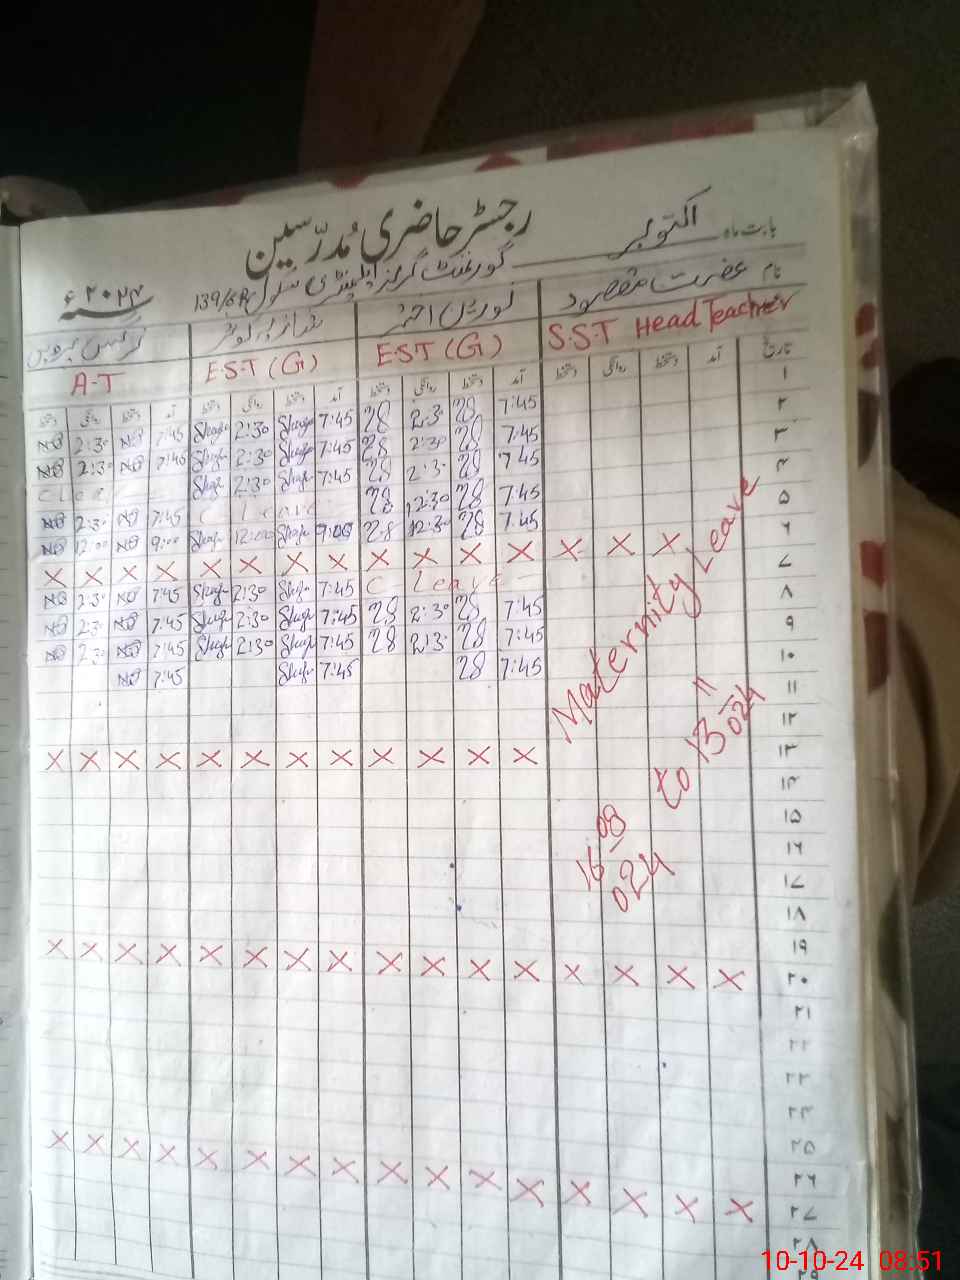 بابت ماہ اکتوبر
رجسٹر حاضری مُدرّسین
گورنمنٹ گرلز ایلیمنٹری سکول 139/6R
سنہ ۲۰۲۴ء
نام عفرت مقصود
S.S.T Head Teacher
E.S.T (G)
E.S.T (G)
A-T
تاریخ آمد دستخط روانگی دستخط آمد دستخط روانگی دستخط آمد دستخط روانگی دستخط آمد دستخط روانگی دستخط
۱ 7:45 28 2:30 28 7:45 2:30 7:45 NB 2:30 NB
۲ 7:45 28 2:30 28 7:45 2:30 7:45 NB 2:30 NB
۳ 7:45 28 2:30 28 7:45 2:30 C Lea
۴ 7:45 28 12:30 28 C Leave 7:45 NB 2:30 NB
۵ 7:45 28 12:30 28 9:00 12:00 9:00 NB 12:00 NB
۶ X X X X X X X X X X X X X X X
۷ C Leave 7:45 2:30 7:45 NB 2:30 NB
۸ 7:45 28 2:30 28 7:45 2:30 7:45 NB 2:30 NB
۹ 7:45 28 2:30 28 7:45 2:30 7:45 NB 2:30 NB
۱۰ 7:45 28 7:45 7:45 NB
۱۱
۱۲
۱۳ X X X X X X X X X X X X
۱۴
۱۵
۱۶
۱۷
۱۸
۱۹
۲۰ X X X X X X X X X X X X X X X X
۲۱
۲۲
۲۳
۲۴
۲۵
۲۶
۲۷ X X X X X X X X X X X X X X X X
۲۸
۲۹
Maternity Leave
16 08 024 to 13 11 024
10-10-24 08:51